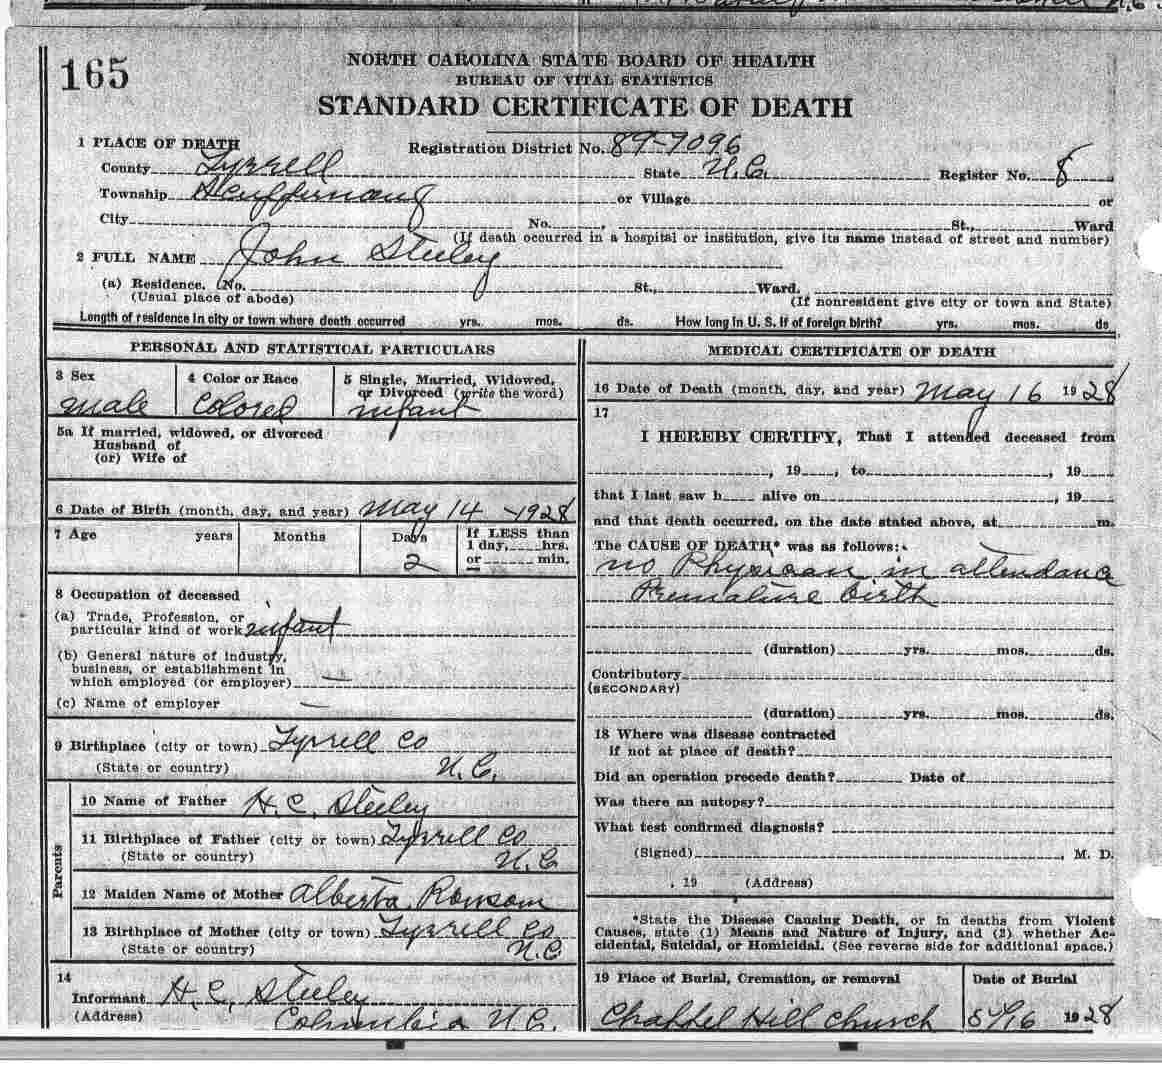 165
NORTH CAROLINA STATE BOARD OF HEALTH
BUREAU OF VITAL STATISTICS
STANDARD CERTIFICATE OF DEATH
1 PLACE OF DEATH Registration District No. 89-7096
County Tyrrell State N.C. Register No. 8
Township Scuppernong or Village or
City No. , St., Ward
(If death occurred in a hospital or institution, give its name instead of street and number)
2 FULL NAME John Steeley
(a) Residence. No. St., Ward.
(Usual place of abode) (If nonresident give city or town and State)
Length of residence in city or town where death occurred yrs. mos. ds. How long in U. S. if of foreign birth? yrs. mos. ds
PERSONAL AND STATISTICAL PARTICULARS
3 Sex 4 Color or Race 5 Single, Married, Widowed,
or Divorced (write the word)
male colored infant
5a If married, widowed, or divorced
Husband of
(or) Wife of
6 Date of Birth (month, day, and year) May 14 - 1928
7 Age years Months Days If LESS than
1 day, hrs.
2 or min.
8 Occupation of deceased
(a) Trade, Profession, or
particular kind of work infant
(b) General nature of industry,
business, or establishment in
which employed (or employer) —
(c) Name of employer —
9 Birthplace (city or town) Tyrrell Co
(State or country) N.C.
Parents
10 Name of Father H. C. Steeley
11 Birthplace of Father (city or town) Tyrrell Co
(State or country) N.C
12 Maiden Name of Mother Alberta Rowsom
13 Birthplace of Mother (city or town) Tyrrell Co
(State or country) N.C
14
Informant H. C. Steeley
(Address) Columbia N.C.
MEDICAL CERTIFICATE OF DEATH
16 Date of Death (month, day, and year) May 16 1928
17
I HEREBY CERTIFY, That I attended deceased from
, 19 , to , 19
that I last saw h alive on , 19
and that death occurred, on the date stated above, at m.
The CAUSE OF DEATH,* was as follows:
no Physician in attendance
Premature birth
(duration) yrs. mos. ds.
Contributory
(SECONDARY)
(duration) yrs. mos. ds.
18 Where was disease contracted
if not at place of death?
Did an operation precede death? Date of
Was there an autopsy?
What test confirmed diagnosis?
(Signed) , M. D.
, 19 (Address)
*State the Disease Causing Death, or in deaths from Violent
Causes, state (1) Means and Nature of Injury, and (2) whether Ac-
cidental, Suicidal, or Homicidal. (See reverse side for additional space.)
19 Place of Burial, Cremation, or removal Date of Burial
Chappel Hill Church 5/16 1928